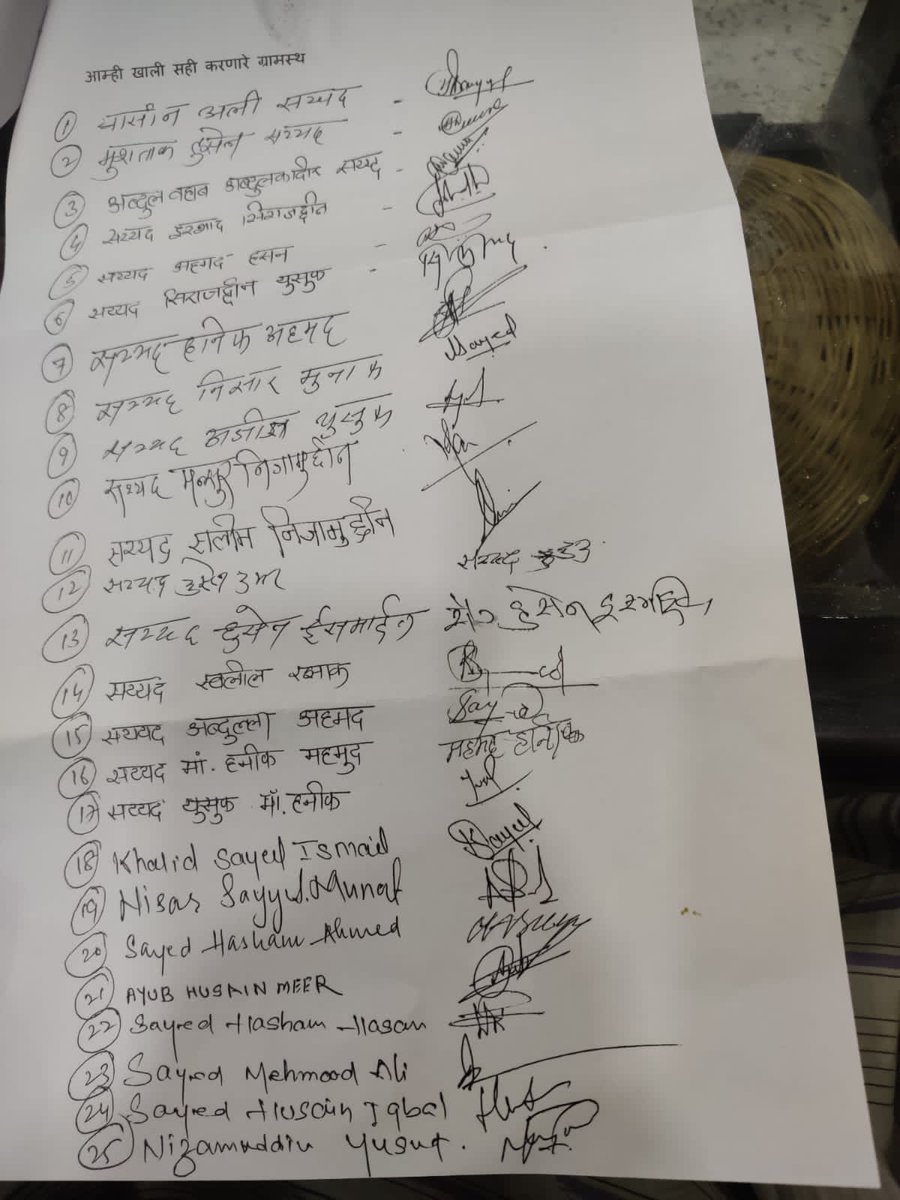 आम्ही खाली सही करणारे ग्रामस्थ
1 यासीन अली सय्यद -
2 मुशताक हुसेन सय्यद -
3 अब्दुल वहाब अब्दुलकादीर सय्यद -
4 सय्यद इरशाद सिराजद्दीन -
5 सय्यद अहमद हसन -
6 सय्यद सिराजद्दीन युसुफ -
7 सय्यद हानिफ अहमद
8 सय्यद निसार मुनाफ Sayed
9 सय्यद अजीज युसुफ
10 सय्यद मन्सुर निजामुद्दीन
11 सय्यद सलीम निजामुद्दीन
12 सय्यद हुसेन उमर सय्यद
13 सय्यद हुसेन ईसमाईल हुसेन
14 सय्यद खलील रज्जाक
15 सय्यद अब्दुल्ला अहमद
16 सय्यद मां. हनीफ महमुद महमद हानिफ
17 सय्यद युसुफ मॉ. हनीफ
18 Khalid Sayed Ismail Sayed
19 Nisar Sayyed. Munaf
20 Sayed Hasham Ahmed
21 AYUB HUSAIN MEER
22 Sayyed Hasham Hasan
23 Sayed Mehmood Ali
24 Sayed Husain Iqbal
25 Nizamuddin Yusuf.